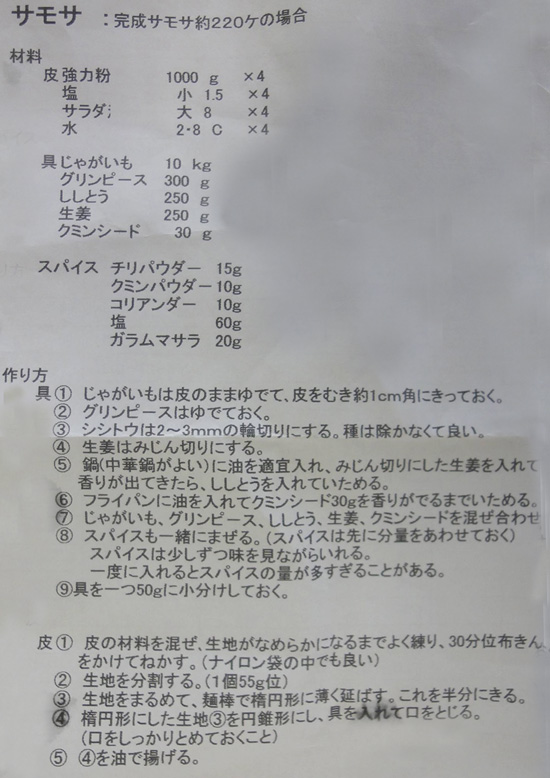 サモサ :完成サモサ約220ケの場合
材料
皮強力粉 1000 g ×4
塩 小 1.5 ×4
サラダ 大 8 ×4
水 2・8 C ×4
具じゃがいも 10 kg
グリンピース 300 g
ししとう 250 g
生姜 250 g
クミンシード 30 g
スパイス チリパウダー 15g
クミンパウダー10g
コリアンダー 10g
塩 60g
ガラムマサラ 20g
作り方
具① じゃがいもは皮のままゆでて、皮をむき約1cm角にきっておく。
② グリンピースはゆでておく。
③ シシトウは2~3mmの輪切りにする。種は除かなくて良い。
④ 生姜はみじん切りにする。
⑤ 鍋(中華鍋がよい)に油を適宜入れ、みじん切りにした生姜を入れて
香りが出てきたら、ししとうを入れていためる。
⑥ フライパンに油を入れてクミンシード30gを香りがでるまでいためる。
⑦ じゃがいも、グリンピース、ししとう、生姜、クミンシードを混ぜ合わせ
⑧ スパイスも一緒にまぜる。(スパイスは先に分量をあわせておく)
スパイスは少しずつ味を見ながらいれる。
一度に入れるとスパイスの量が多すぎることがある。
⑨具を一つ50gに小分けしておく。
皮① 皮の材料を混ぜ、生地がなめらかになるまでよく練り、30分位布きん
をかけてねかす。(ナイロン袋の中でも良い)
② 生地を分割する。(1個55g位)
③ 生地をまるめて、麺棒で楕円形に薄く延ばす。これを半分にきる。
④ 楕円形にした生地③を円錐形にし、具を入れて口をとじる。
(口をしっかりとめておくこと)
⑤ ④を油で揚げる。